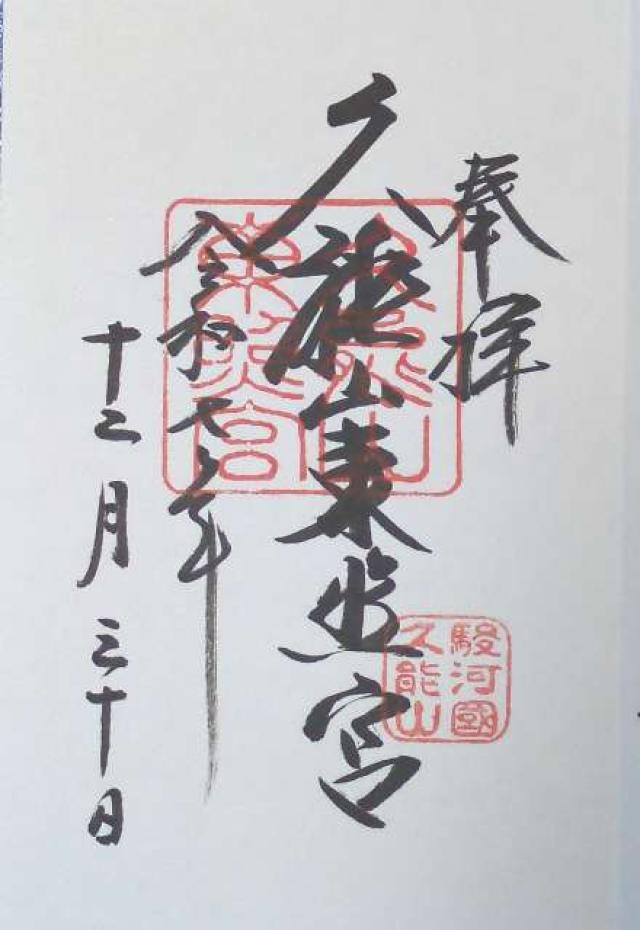 奉拝
久能山東照宮
令和七年
十二月三十日
久能山
東照宮
駿河國
久能山